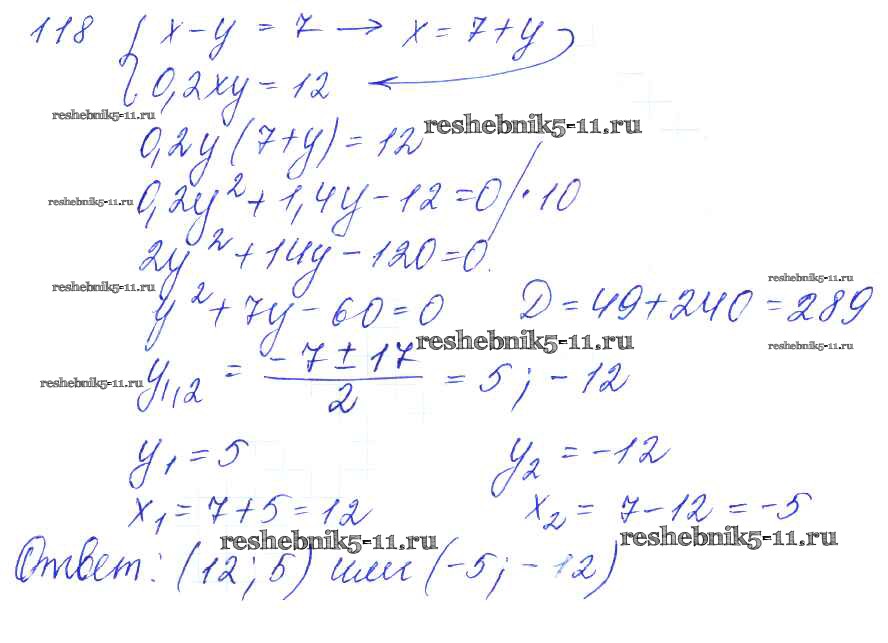 118 { x - y = 7 → x = 7 + y
0,2xy = 12
reshebnik5-11.ru
reshebnik5-11.ru
0,2y (7+y) = 12
reshebnik5-11.ru
0,2y² + 1,4y - 12 = 0 / · 10
2y² + 14y - 120 = 0
reshebnik5-11.ru
reshebnik5-11.ru
y² + 7y - 60 = 0 D = 49 + 240 = 289
reshebnik5-11.ru
reshebnik5-11.ru
reshebnik5-11.ru
y1,2 = (-7 ± 17) / 2 = 5; -12
y₁ = 5 y₂ = -12
x₁ = 7 + 5 = 12 x₂ = 7 - 12 = -5
reshebnik5-11.ru
reshebnik5-11.ru
Ответ: (12; 5) или (-5; -12)